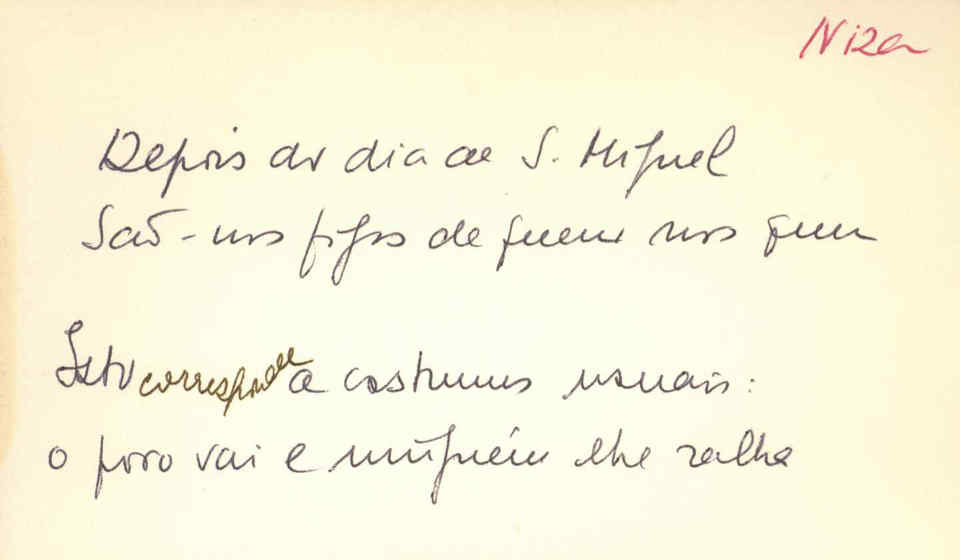 Niza
Depois do dia de S. Miguel
São-nos figos de quem nos quer
Isto corresponde a costumes usuais:
o povo vai e ninguém lhe ralha